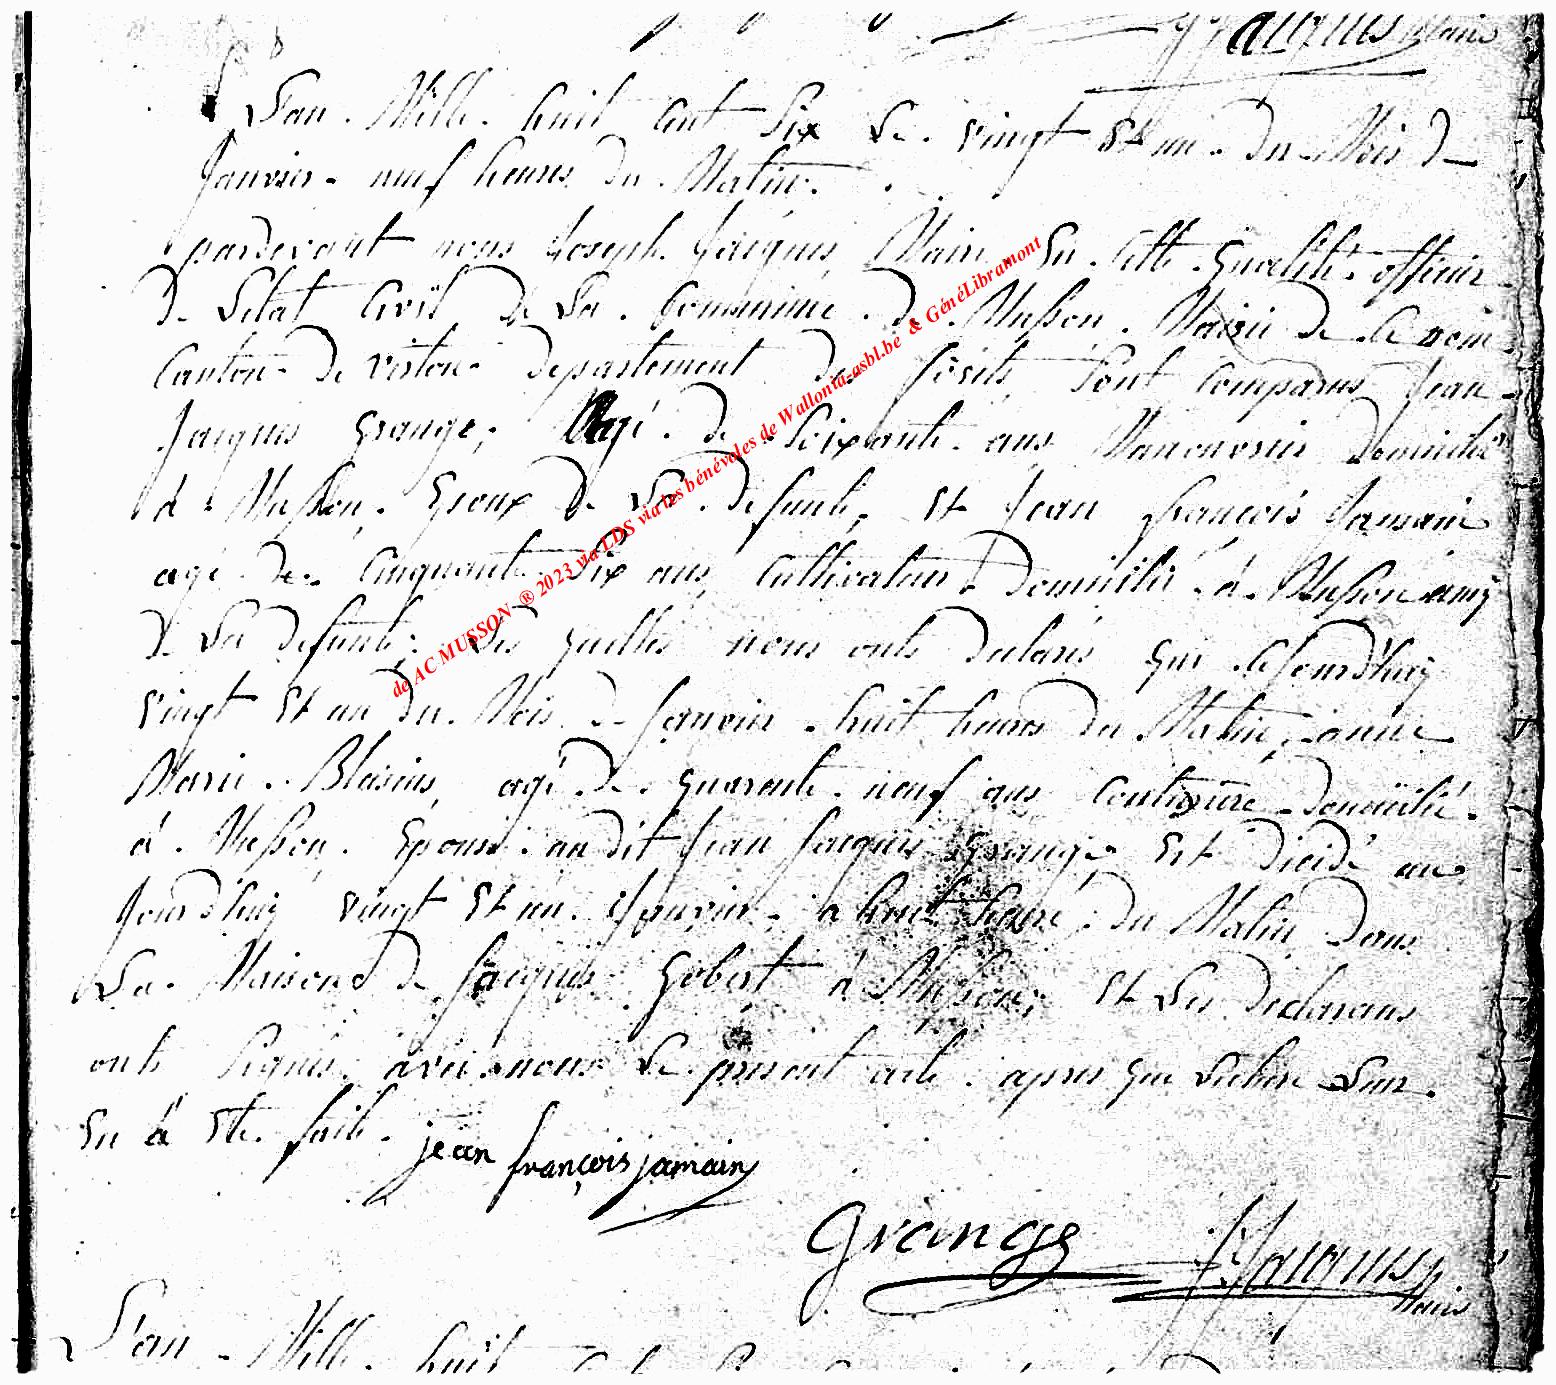 Jacques Maire
L'an Mille huit Cent Six Le vingt Et un du Mois de
Janvier neuf heures du Matin.
pardevant nous Joseph Jacques, Maire En Cette qualité officier
De L'etat Civil de La Commune de Musson, Mairie de Ce nom
Canton de virton departement des forêts, Sont Comparus Jean
Jacques Grange, Agé de Soixante ans Manouvrier domicilié
à Musson, Epoux de La defunte, Et Jean françois Jamain
agé de Cinquante Six ans, Cultivateur Domicilié à Musson amy
de La defunte; Les quelles nous onts declarés que cejourd'huy
vingt Et un du Mois de Janvier huit heures du Matin, anne
Marie Blasius, agé de quarente neuf ans Couturiere domicilié
à Musson, Epouse au dit Jean Jacques Grange, Est Décédé au
Jourd'huy vingt Et un Janvier a huit heure du Matin dans
La Maison de Jacques Gobert à Musson; Et Les declarans
onts Signés avec nous Le present acte apres que Lecture Leur
En à Ete faite. jean françois jamain
Grange
J. Jacques
Maire
L'an Mille huit
de AC MUSSON ® 2023 via LDS via les bénévoles de Wallonia-asbl.be & GénéLibramont